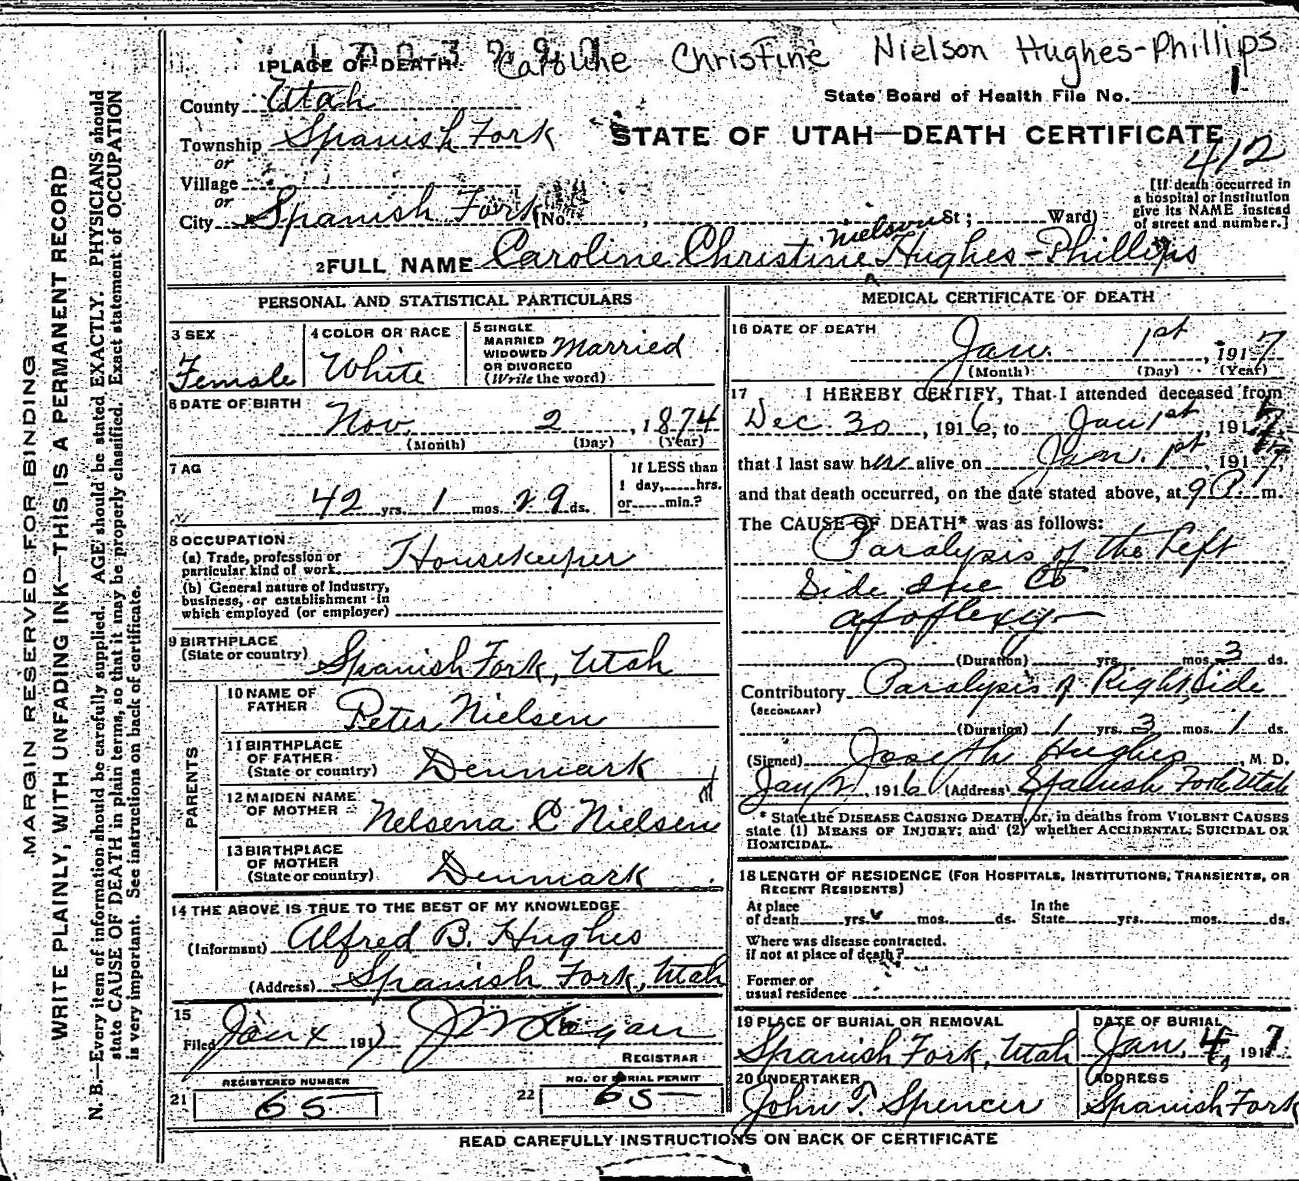 Caroline Christine Nielson Hughes-Phillips
1 PLACE OF DEATH
County Utah
State Board of Health File No. 1
Township Spanish Fork
STATE OF UTAH—DEATH CERTIFICATE
412
or
Village
or
City Spanish Fork (No. , St; Ward)
[If death occurred in
a hospital or institution
give its NAME instead
of street and number.]
2 FULL NAME Caroline Christine Nielson Hughes-Phillips
PERSONAL AND STATISTICAL PARTICULARS
3 SEX
Female
4 COLOR OR RACE
White
5 SINGLE
MARRIED
WIDOWED
OR DIVORCED
(Write the word)
Married
6 DATE OF BIRTH
Nov 2, 1874
(Month) (Day) (Year)
7 AG
42 yrs. 1 mos. 29 ds.
If LESS than
1 day, hrs.
or min.?
8 OCCUPATION
(a) Trade, profession or
particular kind of work Housekeeper
(b) General nature of industry,
business, or establishment in
which employed (or employer)
9 BIRTHPLACE
(State or country) Spanish Fork, Utah
PARENTS
10 NAME OF
FATHER Peter Nielsen
11 BIRTHPLACE
OF FATHER
(State or country) Denmark
12 MAIDEN NAME
OF MOTHER Nelsena C Nielsen
13 BIRTHPLACE
OF MOTHER
(State or country) Denmark
14 THE ABOVE IS TRUE TO THE BEST OF MY KNOWLEDGE
(Informant) Alfred B. Hughes
(Address) Spanish Fork, Utah
15
Filed Jan 4 1917
REGISTRAR
REGISTERED NUMBER
21 65
NO. OF BURIAL PERMIT
22 65
MEDICAL CERTIFICATE OF DEATH
16 DATE OF DEATH
Jan. 1st, 1917
(Month) (Day) (Year)
17 I HEREBY CERTIFY, That I attended deceased from
Dec. 30, 1916, to Jan 1st, 1917
that I last saw her alive on Jan. 1st, 1917,
and that death occurred, on the date stated above, at 9 P. m.
The CAUSE OF DEATH* was as follows:
Paralysis of the Left
Side due to
apoplexy
(Duration) yrs. mos. 3 ds.
Contributory Paralysis of Right Side
(SECONDARY)
(Duration) 1 yrs. 3 mos. 1 ds.
(Signed) Joseph Hughes, M. D.
Jan 2, 1916 (Address) Spanish Fork Utah
* State the DISEASE CAUSING DEATH, or, in deaths from VIOLENT CAUSES
state (1) MEANS OF INJURY; and (2) whether ACCIDENTAL, SUICIDAL OR
HOMICIDAL.
18 LENGTH OF RESIDENCE (FOR HOSPITALS, INSTITUTIONS, TRANSIENTS, OR
RECENT RESIDENTS)
At place
of death yrs. mos. ds.
In the
State yrs. mos. ds.
Where was disease contracted.
if not at place of death?
Former or
usual residence
19 PLACE OF BURIAL OR REMOVAL
Spanish Fork, Utah
DATE OF BURIAL
Jan. 4, 1917
20 UNDERTAKER
John T. Spencer
ADDRESS
Spanish Fork
READ CAREFULLY INSTRUCTIONS ON BACK OF CERTIFICATE
MARGIN RESERVED FOR BINDING
WRITE PLAINLY, WITH UNFADING INK—THIS IS A PERMANENT RECORD
N. B.—Every item of information should be carefully supplied. AGE should be stated EXACTLY. PHYSICIANS should
state CAUSE OF DEATH in plain terms, so that it may be properly classified. Exact statement of OCCUPATION
is very important. See instructions on back of certificate.